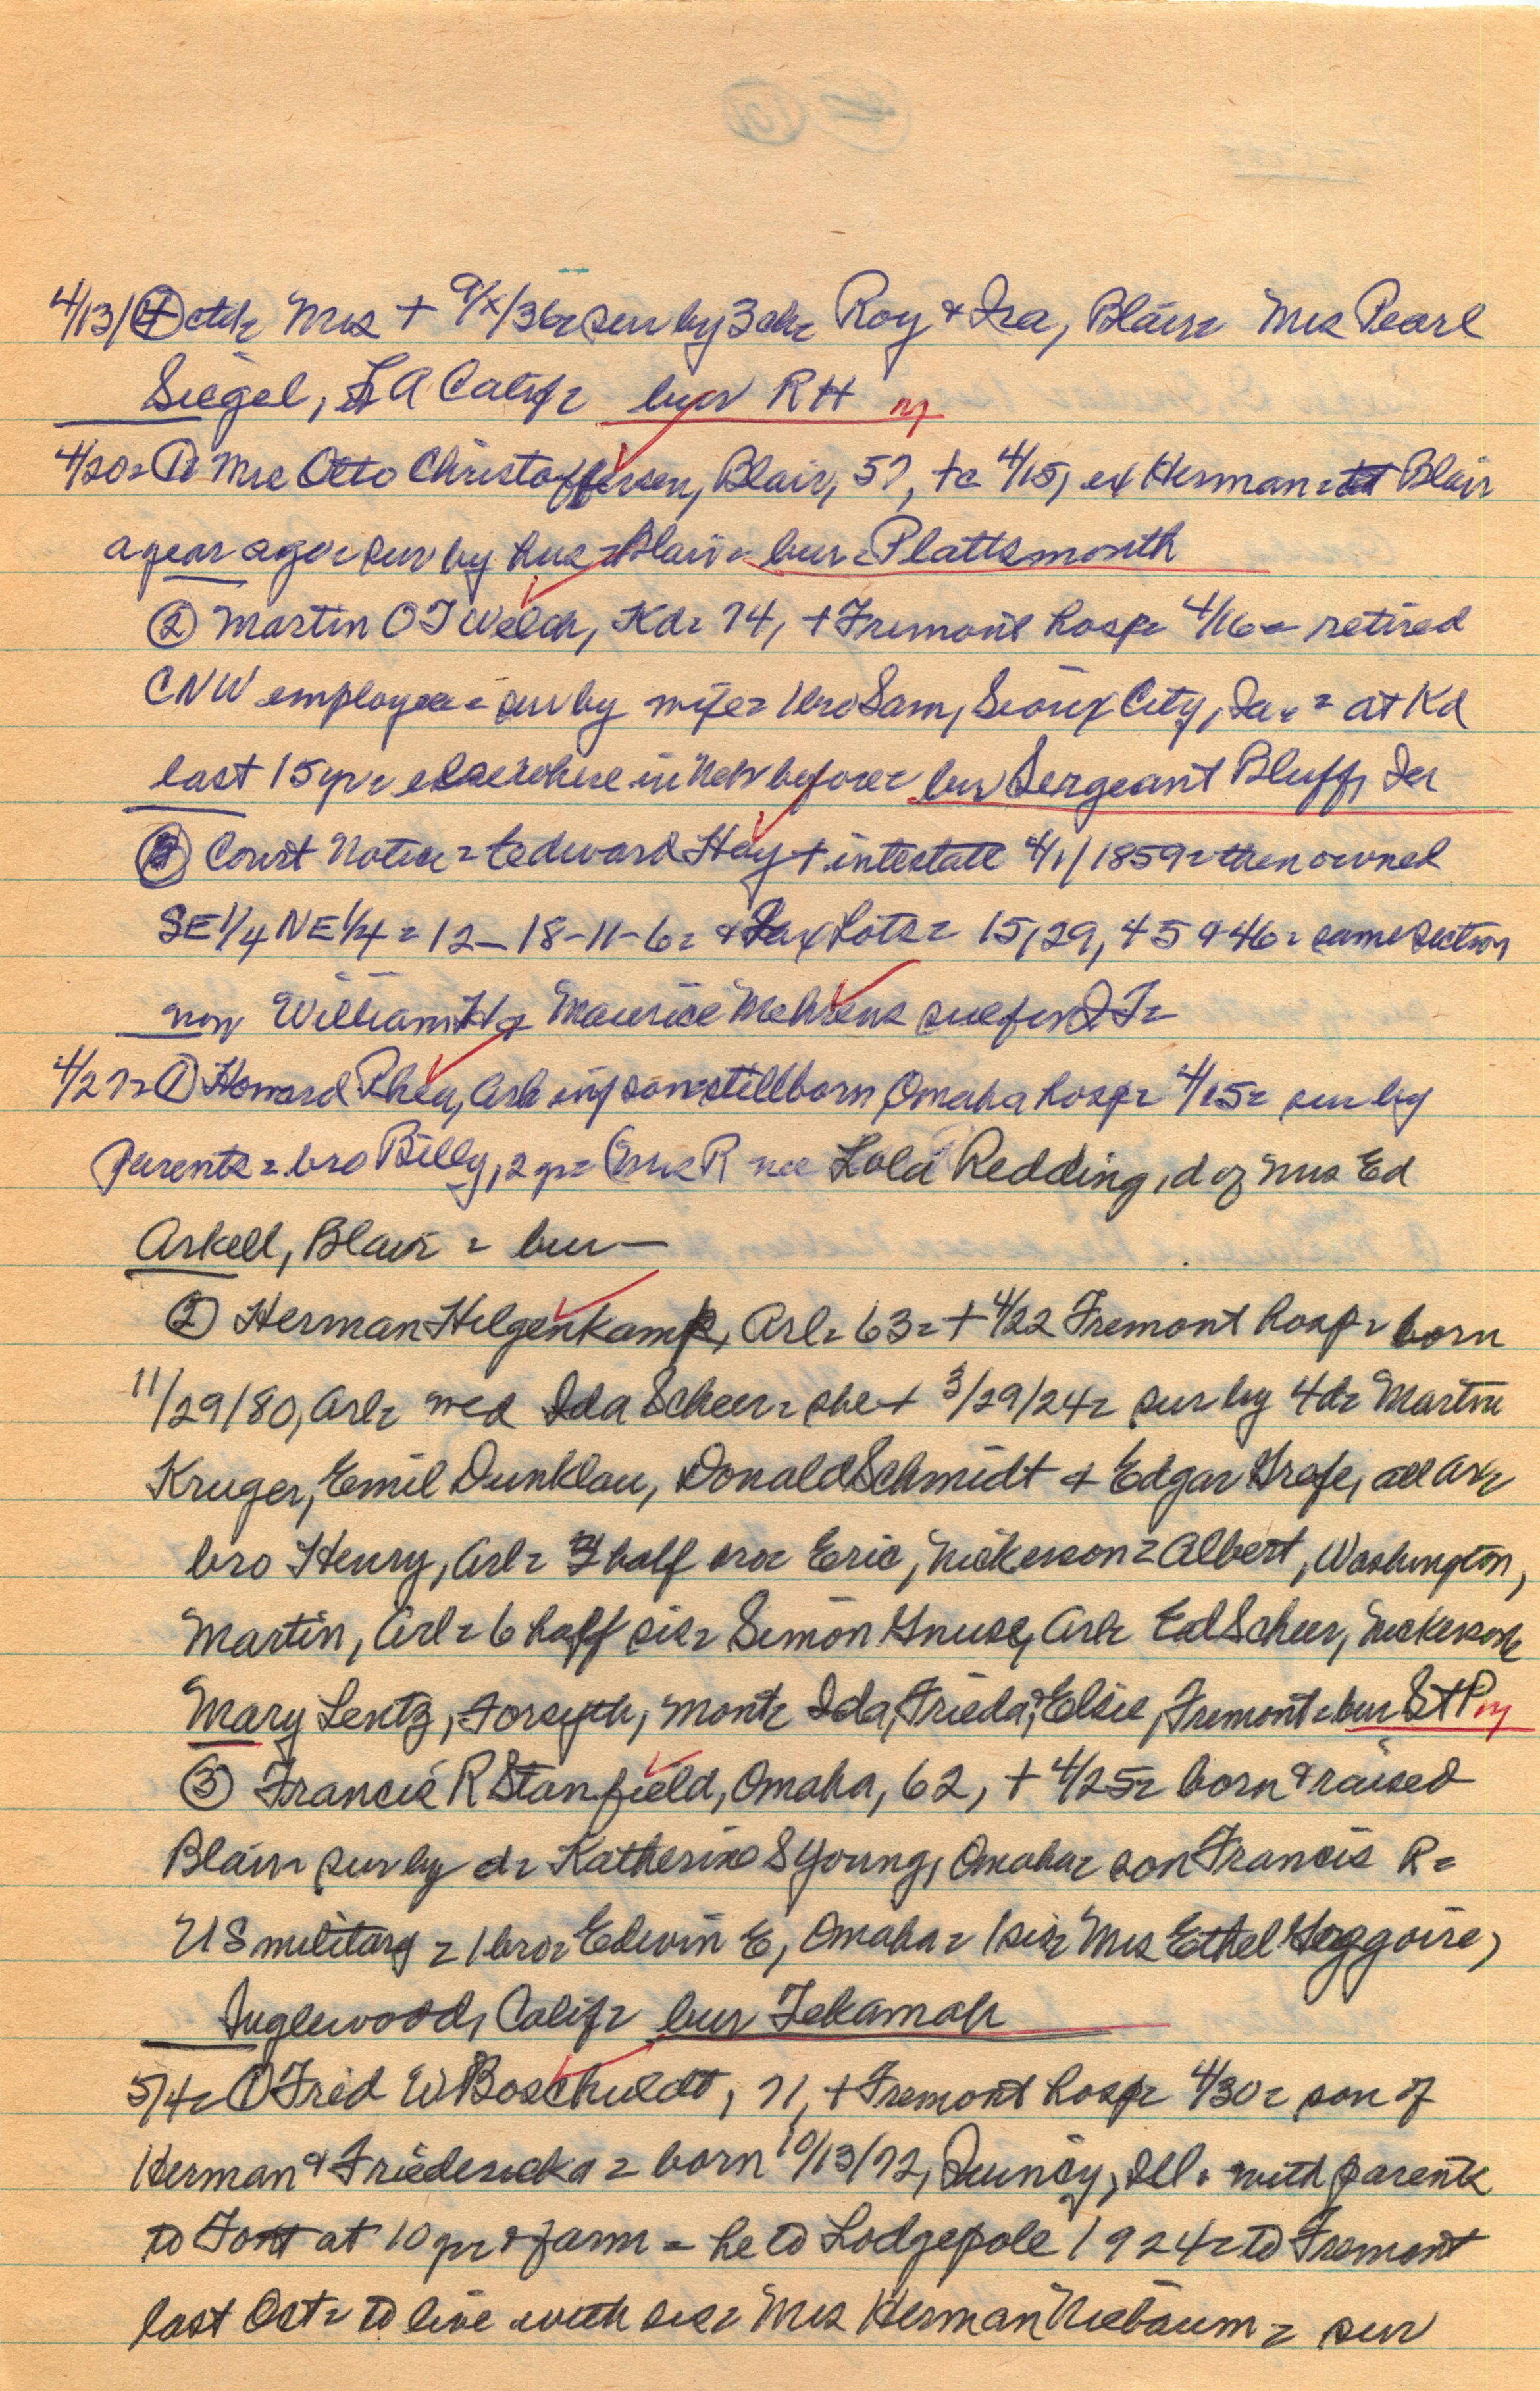 4/13/ ④ ctd= Mrs + 9/x/36= sur by 3 ch= Roy & Ira, Blair= Mrs Pearl
Siegel, LA Calif= bur RH
4/20= ① Mrs Otto Christoffersen, Blair, 57, +c 4/15, ex Herman= Blair
a year ago= sur by hus= Blair= bur= Plattsmouth
② Martin O T Welch, Kd= 74, + Fremont hosp= 4/16= retired
CNW employee= sur by wife= 1 bro Sam, Sioux City, Ia.= at Kd
last 15 yr= elsewhere in Neb before= bur Sergeant Bluff, Ia
③ Court Notice= Edward Hoy + intestate 4/1/1859= then owned
SE 1/4 NE 1/4= 12-18-11-6= & Tax Lots= 15, 29, 45 & 46= same section
now William H & Maurice Mehrens sue for QT=
4/27= ① Howard Rhea, Arl= inf son= stillborn Omaha hosp= 4/15= sur by
parents= bro Billy, 2 yr= (Mrs R nee Lola Redding, d of Mrs Ed
Askell, Blair= bur—
② Herman Hilgenkamp, Arl= 63= + 4/22 Fremont hosp= born
11/29/80, Arl= wed Ida Scheer= she + 3/29/24= sur by 4 d= Martin
Kruger, Emil Dunklau, Donald Schmidt & Edgar Grefe, all Ar=
bro Henry, Arl= 3 half bro= Eric, Nickerson= Albert, Washington,
Martin, Arl= 6 half sis= Simon Gnuse, Arl= Ed Scheer, Nickerson=
Mary Lentz, Forsyth, Mont= Ida, Frieda, & Elsie, Fremont= bur St P
③ Francis R Stanfield, Omaha, 62, + 4/25= born & raised
Blair= sur by d= Katherine S Young, Omaha= son Francis R=
US military= 1 bro= Edwin E, Omaha= 1 sis= Mrs Ethel
Inglewood, Calif= bur Tekamah
5/4= ① Fred W Boschuldt, 71, + Fremont hosp= 4/30= son of
Herman & Friedericka= born 10/13/72, Quincy, Ill.= with parents
to Font at 10 yr & farm= he to Lodgepole 1924= to Fremont
last Oct= to live with sis= Mrs Herman Niebaum= sur